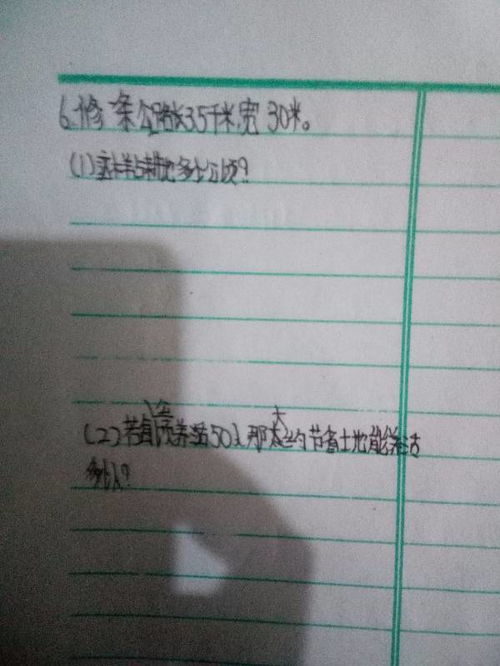 6.修一条公路长35千米,宽30米。
(1)这样占耕地多少公顷?
(2)若每公顷养活50人那大约节省土地能养活
多少人?